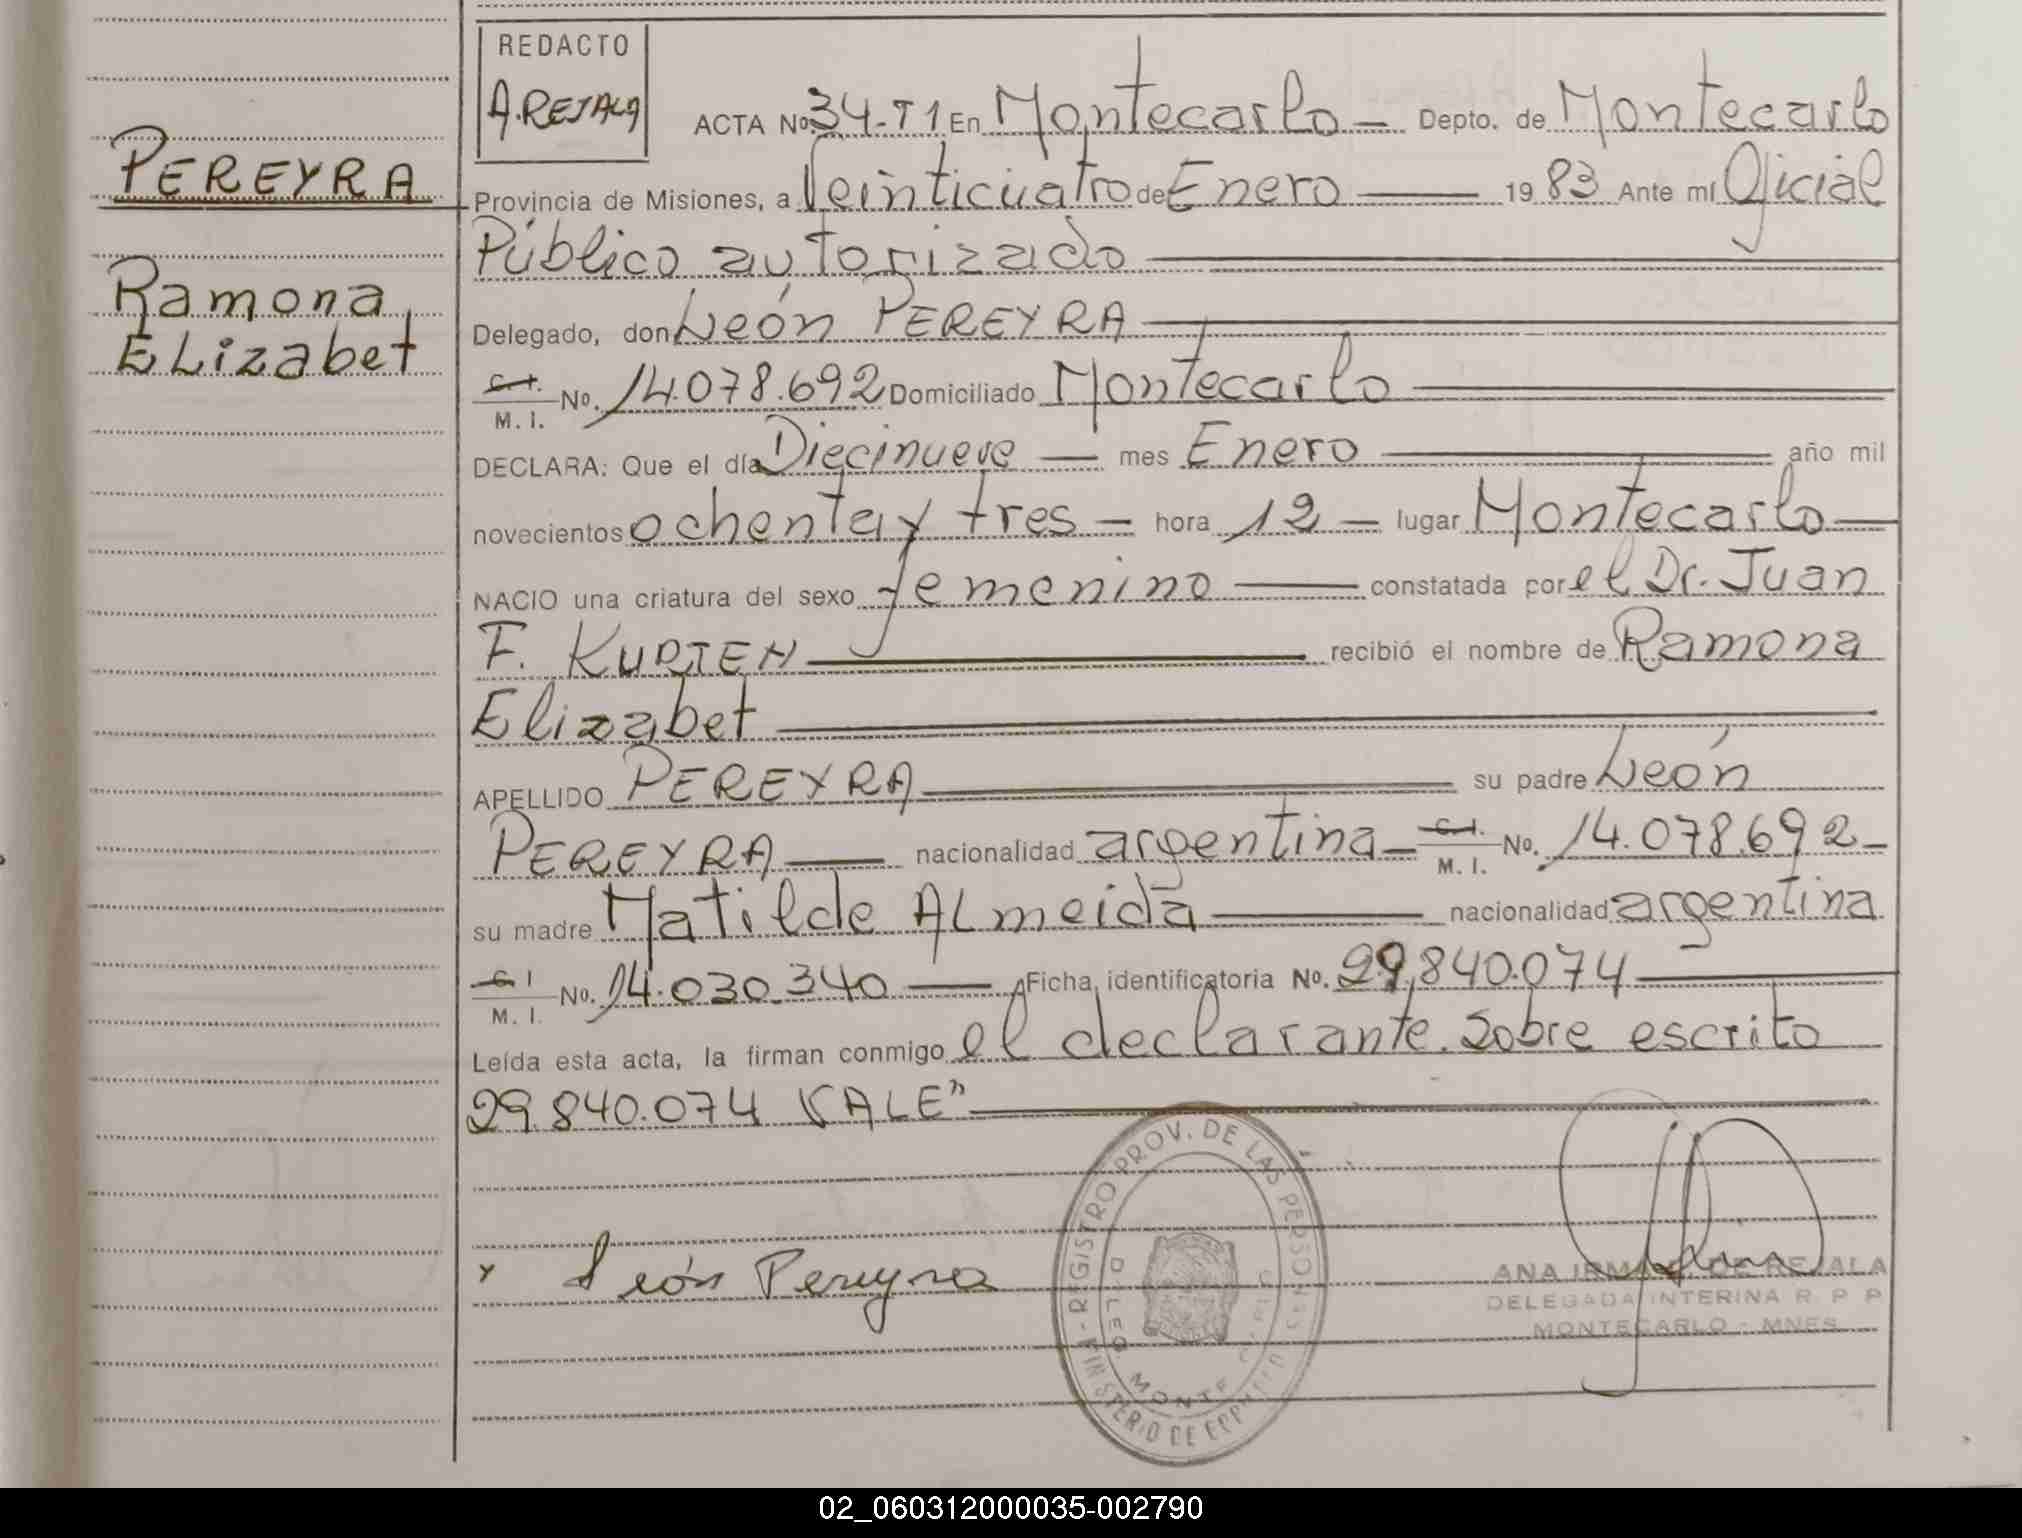 REDACTO
A. REJALA
PEREYRA
Ramona
ELizabet
ACTA No 34-T1 En Montecarlo — Depto. de Montecarlo
Provincia de Misiones, a Veinticuatro de Enero — 19 83 Ante mí Oficial
Público autorizado
Delegado, don León PEREYRA
C. I. / M. I. No. 14.078.692 Domiciliado Montecarlo
DECLARA: Que el día Diecinueve — mes Enero — año mil
novecientos ochenta y tres — hora 12 — lugar Montecarlo —
NACIO una criatura del sexo femenino — constatada por el Dr. Juan
F. KURTEN — recibió el nombre de Ramona
Elizabet
APELLIDO PEREYRA — su padre León
PEREYRA — nacionalidad argentina — C. I. / M. I. No. 14.078.692 —
su madre Matilde ALmeida — nacionalidad argentina
C. I / M. I. No. 14.030.340 — Ficha identificatoria No. 29.840.074 —
Leída esta acta, la firman conmigo el declarante. Sobre escrito
29.840.074 VALE"
x León Pereyra
REGISTRO PROV. DE LAS PERSONAS
ANA IRMA DE REJALA
DELEGADA INTERINA R. P. P.
MONTECARLO - MNES.
02_060312000035-002790